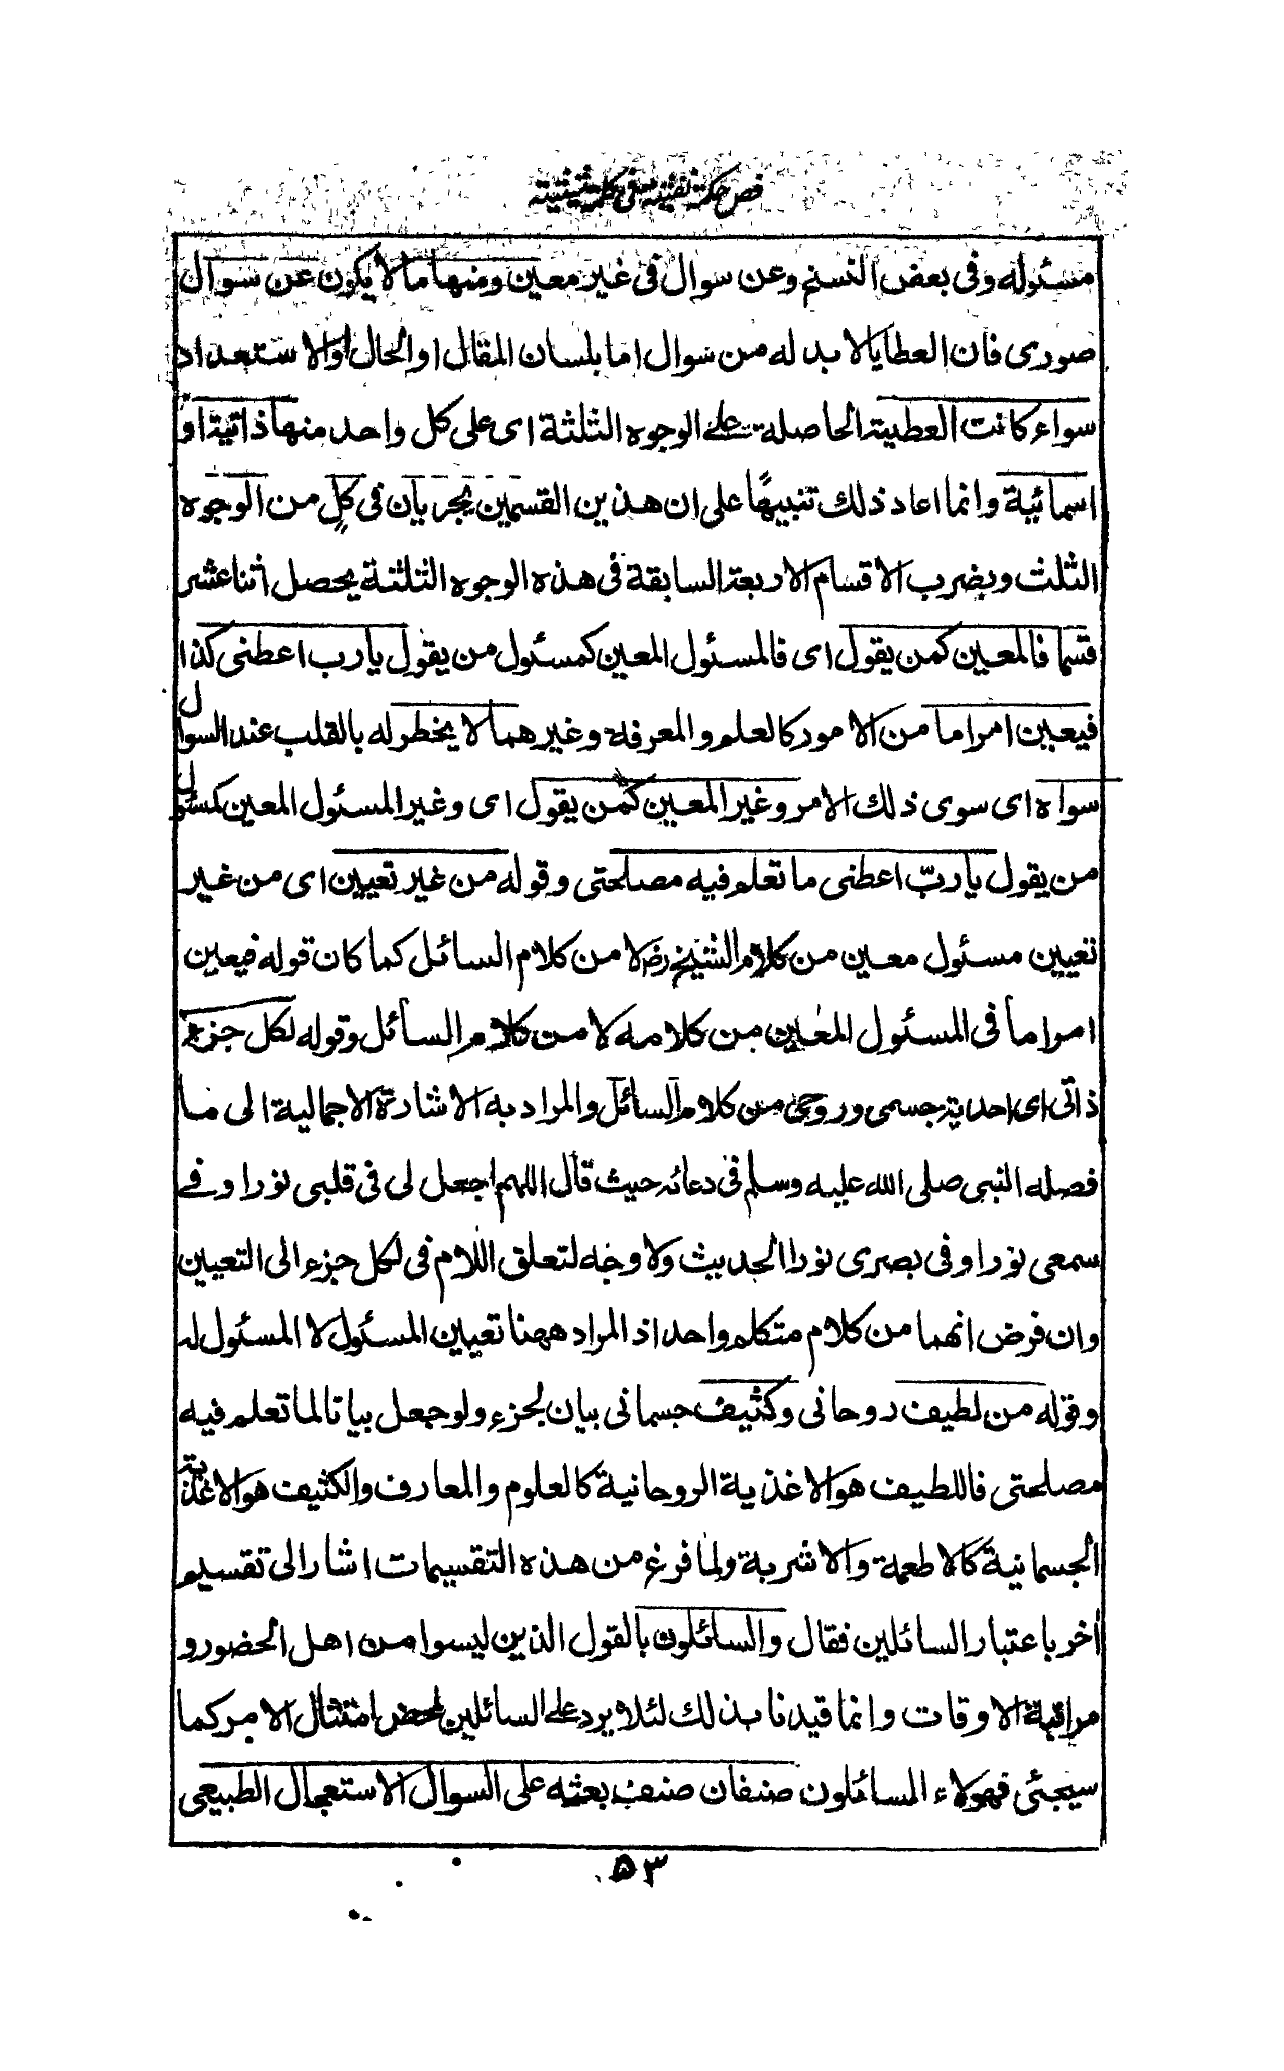 فص حكمة نفثية فى كلمة شيثية
مسئوله وفى بعض النسخ وعن سوال فى غير معين ومنها ما لا يكون عن سوال
صورى فان العطايا لا بد له من سوال اما بلسان المقال او الحال او الاستعداد
سواء كانت العطية الحاصلة على الوجوه الثلثة اى على كل واحد منها ذاتية او
اسمائية وانما اعاد ذلك تنبيهًا على ان هذين القسمين يجريان فى كل من الوجوه
الثلث وبضرب الاقسام الاربعة السابقة فى هذه الوجوه الثلثة يحصل اثنا عشر
قسما فالمعين كمن يقول اى فالمسئول المعين كمسئول من يقول يا رب اعطنى كذا
فيعين امرا ما من الامور كالعلم والمعرفة وغيرهما لا يخطر له بالقلب عند السوال
سواه اى سوى ذلك الامر وغير المعين كمن يقول اى وغير المسئول المعين كمسئول
من يقول يا ربّ اعطنى ما تعلم فيه مصلحتى وقوله من غير تعيين اى من غير
تعيين مسئول معين من كلام الشيخ رض لا من كلام السائل كما كان قوله فيعين
امرا ما فى المسئول المعين من كلامه لا من كلام السائل وقوله لكل جزء
ذاتى اى احدية جسمى وروحى من كلام السائل والمراد به الاشارة الاجمالية الى ما
فصله النبى صلى الله عليه وسلم فى دعائه حيث قال اللهم اجعل لى فى قلبى نورا وفے
سمعى نورا وفى بصرى نورا الحديث ولا وجه لتعلق اللام فى لكل جزء الى التعيين
وان فرض انهما من كلام متكلم واحد اذ المراد ههنا تعيين المسئول لا المسئول له
وقوله من لطيف روحانى وكثيف جسمانى بيان لجزء ولو جعل بيانا لما تعلم فيه
مصلحتى فاللطيف هو الاغذية الروحانية كالعلوم والمعارف والكثيف هو الاغذية
الجسمانية كالاطعمة والاشربة ولما فرغ من هذه التقسيمات اشار الى تقسيم
أخر باعتبار السائلين فقال والسائلون بالقول الذين ليسوا من اهل الحضور و
مراقبة الاوقات وانما قيدنا بذلك لئلا يرد على السائلين لمحض امتثال الامر كما
سيجئى فهولاء السائلون صنفان صنف بعثه على السوال الاستعجال الطبيعى
۵۳